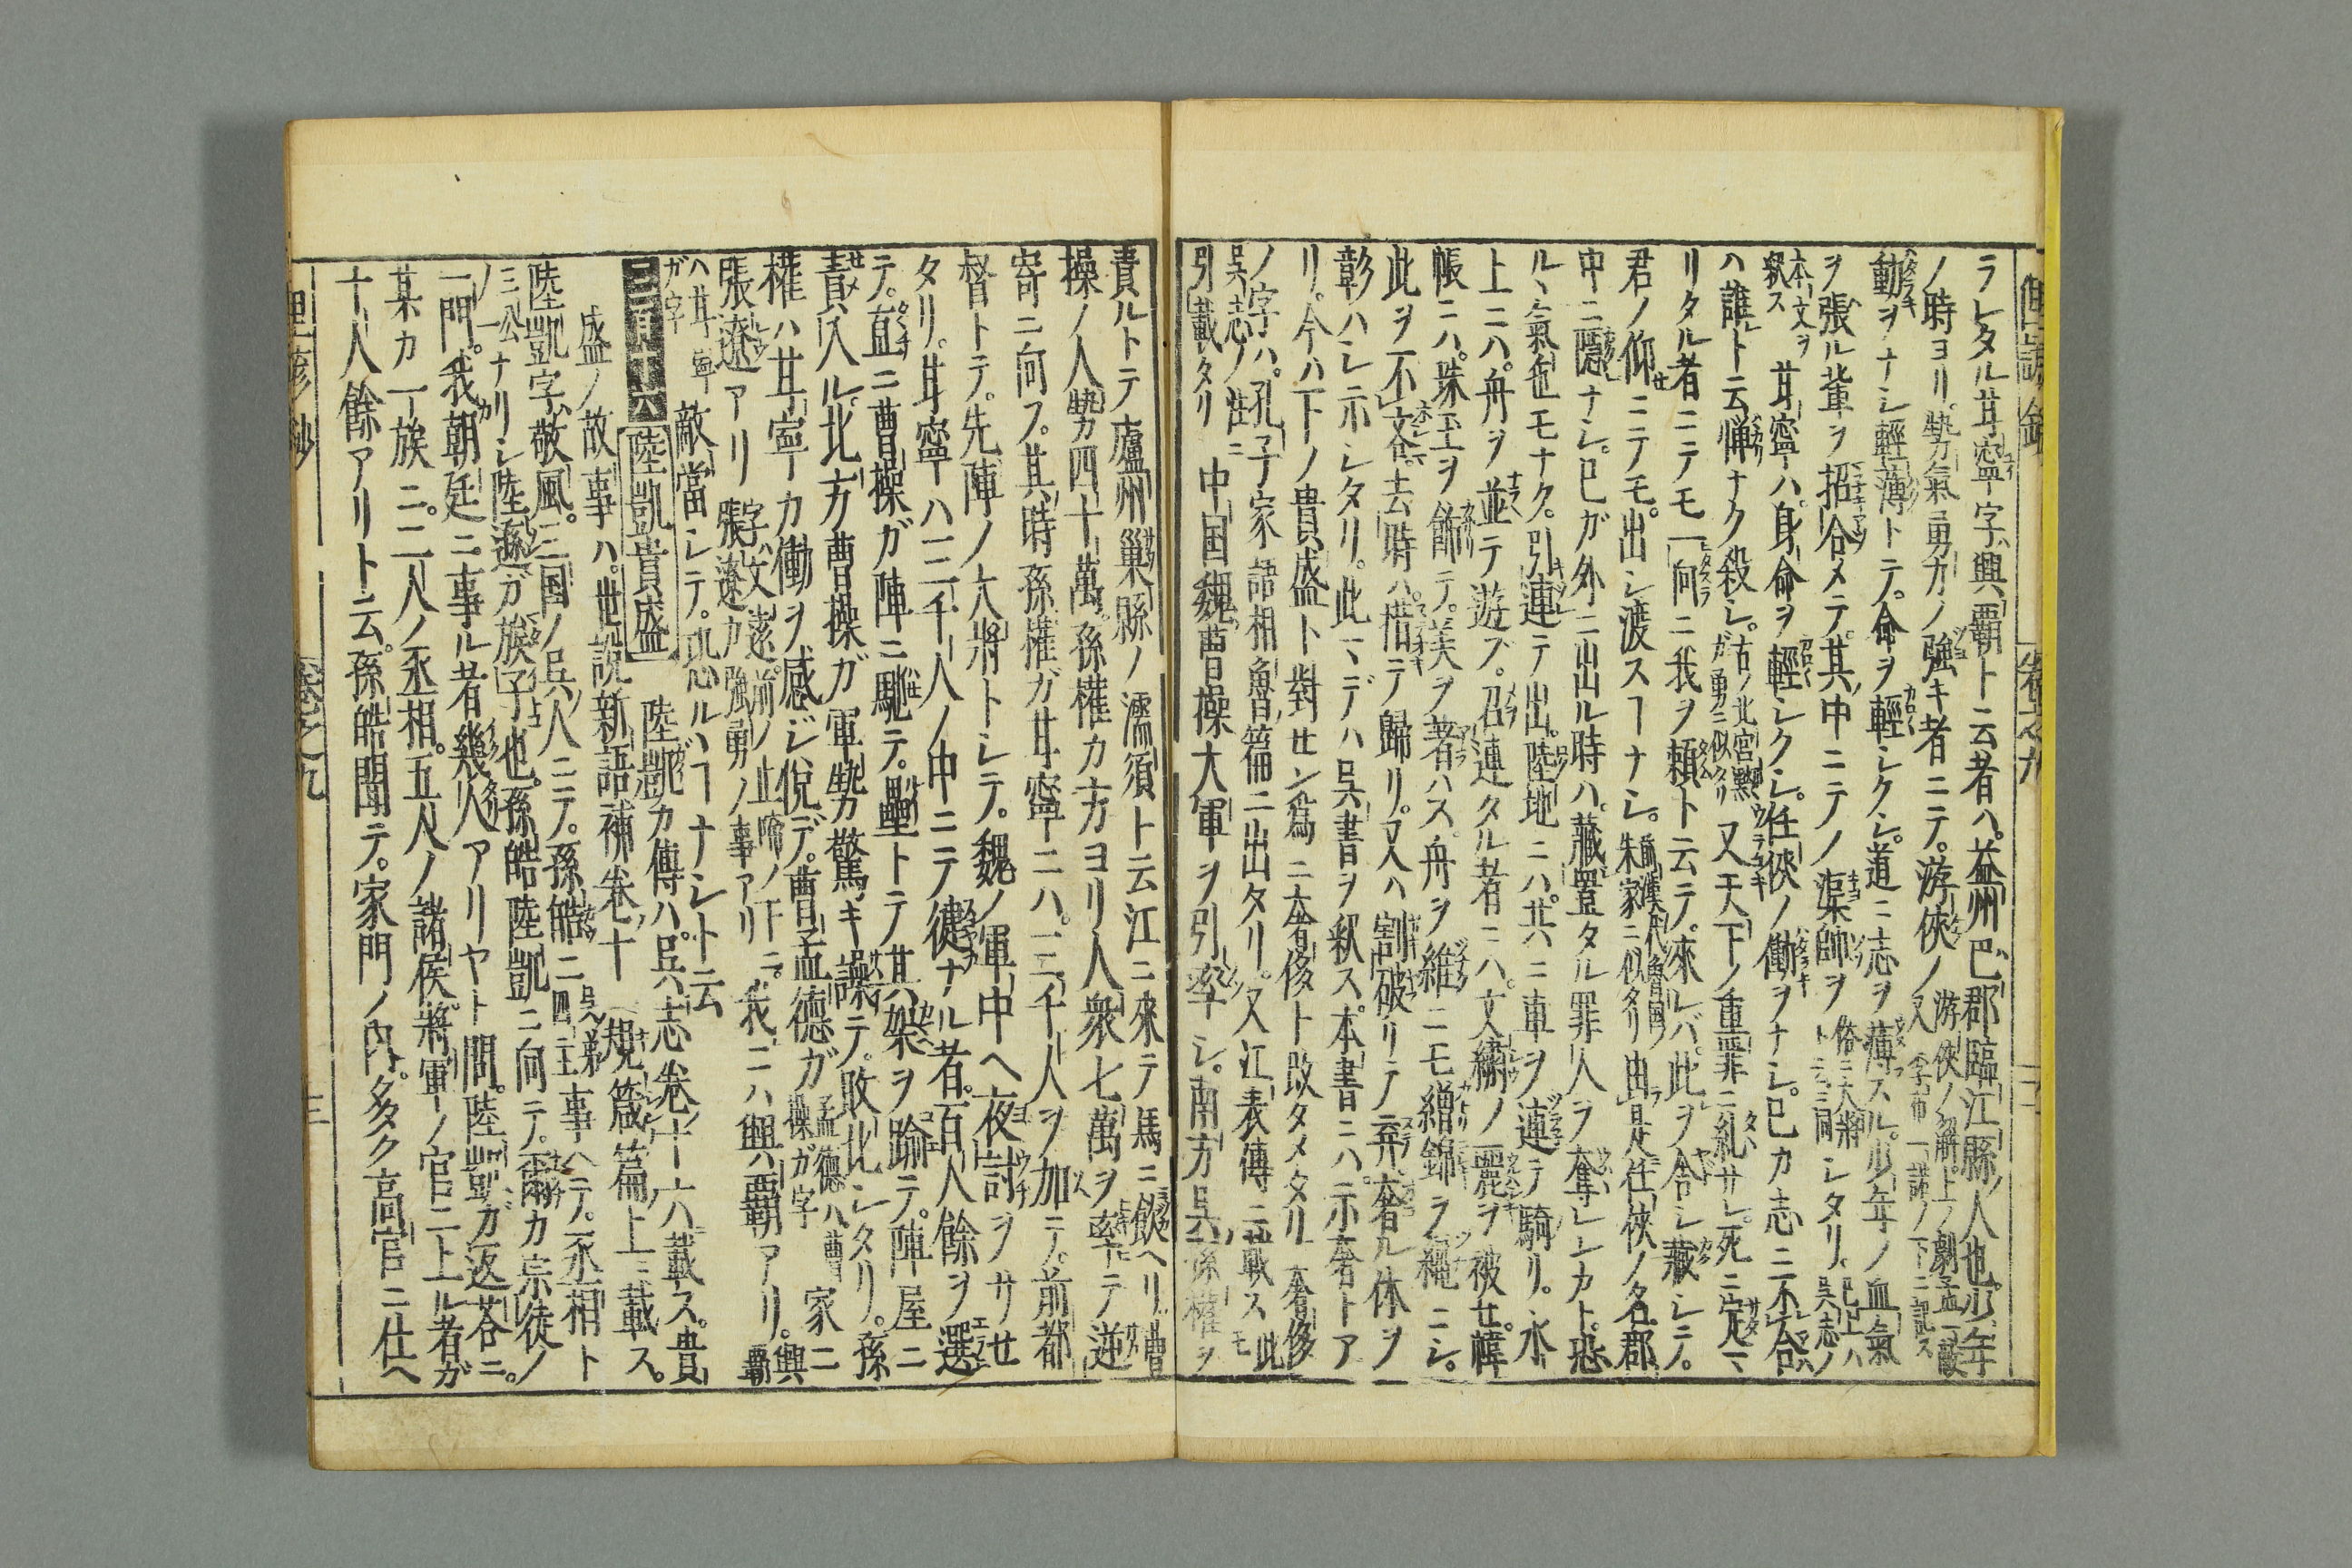 ラレタル甘寧字ハ興覇ト云者ハ。益州巴郡臨江縣ノ人也。少年
ノ時ヨリ。勢氣勇力ノ強キ者ニテ。游俠ノ
動ヲナシ輕薄トテ。命ヲ輕シクシ。道ニ志ヲ薄スル。少年ノ血氣
ヲ張ル輩ヲ招合メテ。其中ニテノ渠帥ヲ 俗ニ大將ト云ニ同 シタリ。已上ハ呉志ノ
本文ヲ釈ス 甘寧ハ。身命ヲ輕シクシ。任俠ノ働ヲナシ。已カ志ニ不合
ハ誰ト云惲ナク殺シ。古ノ北宮黝ガ勇ニ似タリ 又天下ノ重罪ニ糺サレ。死ニ定マ
リタル者ニテモ一向ニ我ヲ頼ト云テ。來レバ。此ヲ舎シ藏シニ。
君ノ仰ニテモ。出シ渡スヿナシ。前漢ノ代魯国ノ朱家ニ似タリ 由是任俠ノ名郡
中ニ隱ナシ。已ガ外ニ出ル時ハ。藏置タル罪人ヲ奪レンカト。恐
ル丶氣色モナク。引連テ出。陸地ニハ。共ニ車ヲ連テ騎リ。水
上ニハ。舟ヲ並テ遊ブ。召連タル者ニハ。文繍ノ麗ヲ被セ。幃
帳ニハ。珠玉ヲ飾テ。美ヲ著ハス。舟ヲ維ニモ繒錦ヲ繩ニシ。
此ヲ不吝。去時ハ。惜テ歸リ。又ハ割破リテ弃。奢ル体ヲ
彰ハシ示シタリ。此マデハ呉書ヲ釈ス。本書ニハ。示奢トア
リ。今ハ下ノ貴盛ト對セン爲ニ奢侈ト改タメタリ 奢侈
ノ字ハ。孔子家語相魯篇ニ出タリ。又江表傳ニ載ス 此モ
呉志ノ注ニ引載タリ 中国魏曹操大軍ヲ引率シ。南方呉ノ孫權ヲ
責ルトテ廬州巢縣ノ濡須ト云江ニ來テ馬ニ飲ヘリ。曹
操ノ人勢四十萬。孫權カ方ヨリ人衆七萬ヲ率テ逆
寄ニ向フ。其時孫權ガ甘寧ニハ。三千人ヲ加ニテ。前部
督トテ。先陣ノ大將トシテ。魏ノ軍中ヘ夜討ヲサセ
タリ。甘寧ハ三千人ノ中ニテ健ナル者。百人餘ヲ選
テ。直ニ曹操ガ陣ニ馳テ。壘トテ其架ヲ踰テ。陣屋ニ
責入ル。北方曹操ガ軍勢驚キ譟テ。敗北シタリ。孫
權ハ甘寧カ働ヲ感ジ悅デ。曹孟德ガ 孟德ハ曹操ガ字 家ニ
張遼アリ 字ハ文遠。前ノ止啼ノ下ニ。張遼カ強勇ノ事アリ 我ニハ興覇アリ。興覇
ハ甘寧ガ字 敵當シテ。恐ルヽヿナシト云
二百十六 陸凱貴盛 陸凱カ傳ハ。呉志巻ノ十六ニ載ス。貴
盛ノ故事ハ。世説新語補巻ノ十 規箴篇ノ上ニ載ス。
陸凱字ハ敬風。三国ノ呉ノ人ニテ。孫皓ニ 呉ノ第四ノ主 事ヘテ。丞相ト
三公ノ一 ナリシ陸遜ガ族子也。孫皓陸凱ニ向テ。爾カ宗徒ノ
一門。我朝廷ニ事ル者幾人アリヤト問。陸凱ガ返荅ニ。
某カ一族ニ。二人ノ丞相。五人ノ諸侯。將軍ノ官ニ上ル者ガ
十人餘アリト云。孫皓聞テ。家門ノ内。多ク高官ニ仕ヘ
巻之九
三